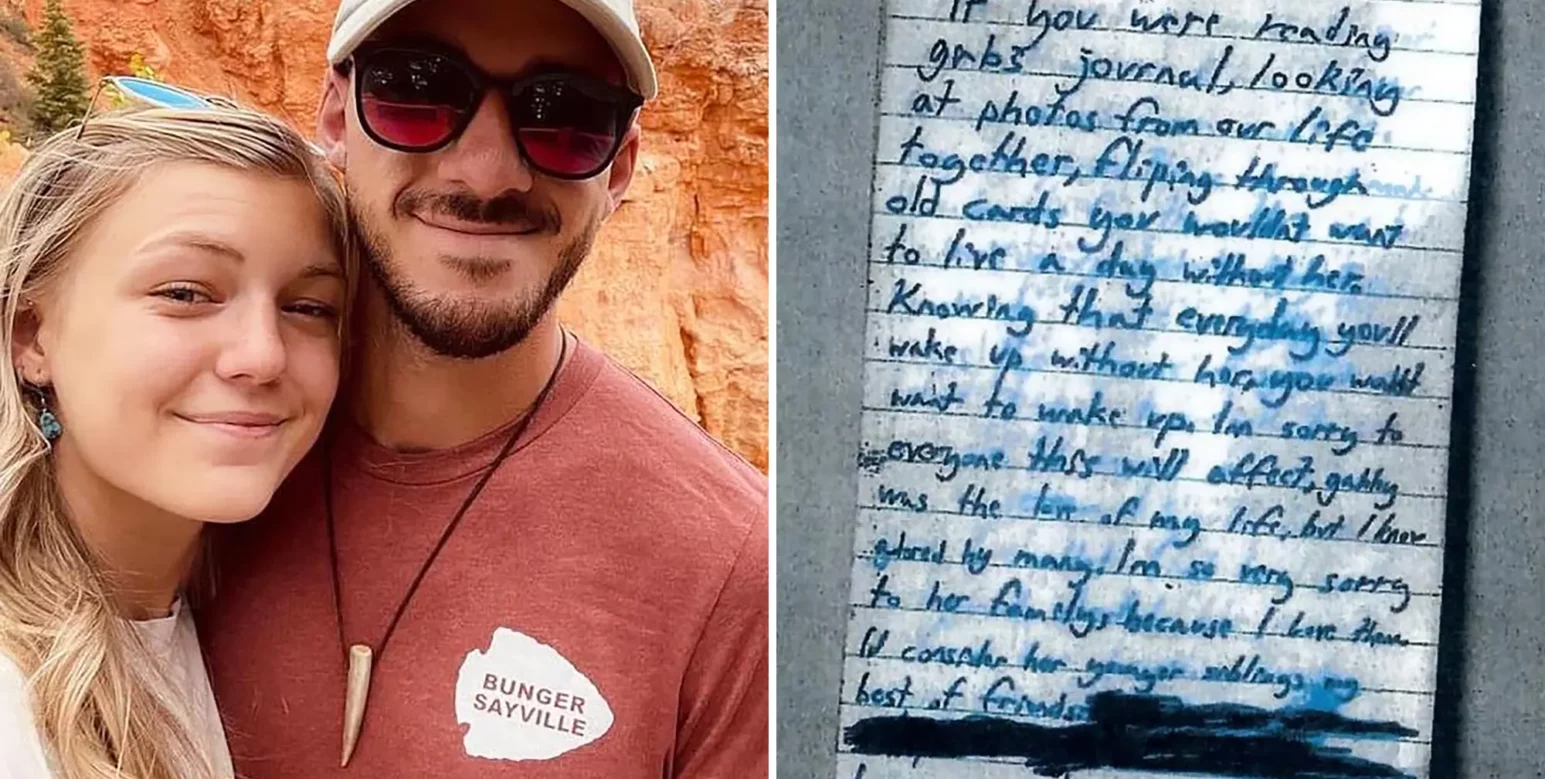 BUNGER
SAYVILLE
If you were reading
gabs journal, looking
at photos from our life
together, fliping through
old cards you wouldnt want
to live a day without her.
Knowing that everyday youll
wake up without her, you wouldnt
want to wake up. Im sorry to
everyone this will affect, gabby
was the love of my life, but I know
adored by many. Im so very sorry
to her family, because I love them.
Id consider her younger siblings my
best of friends